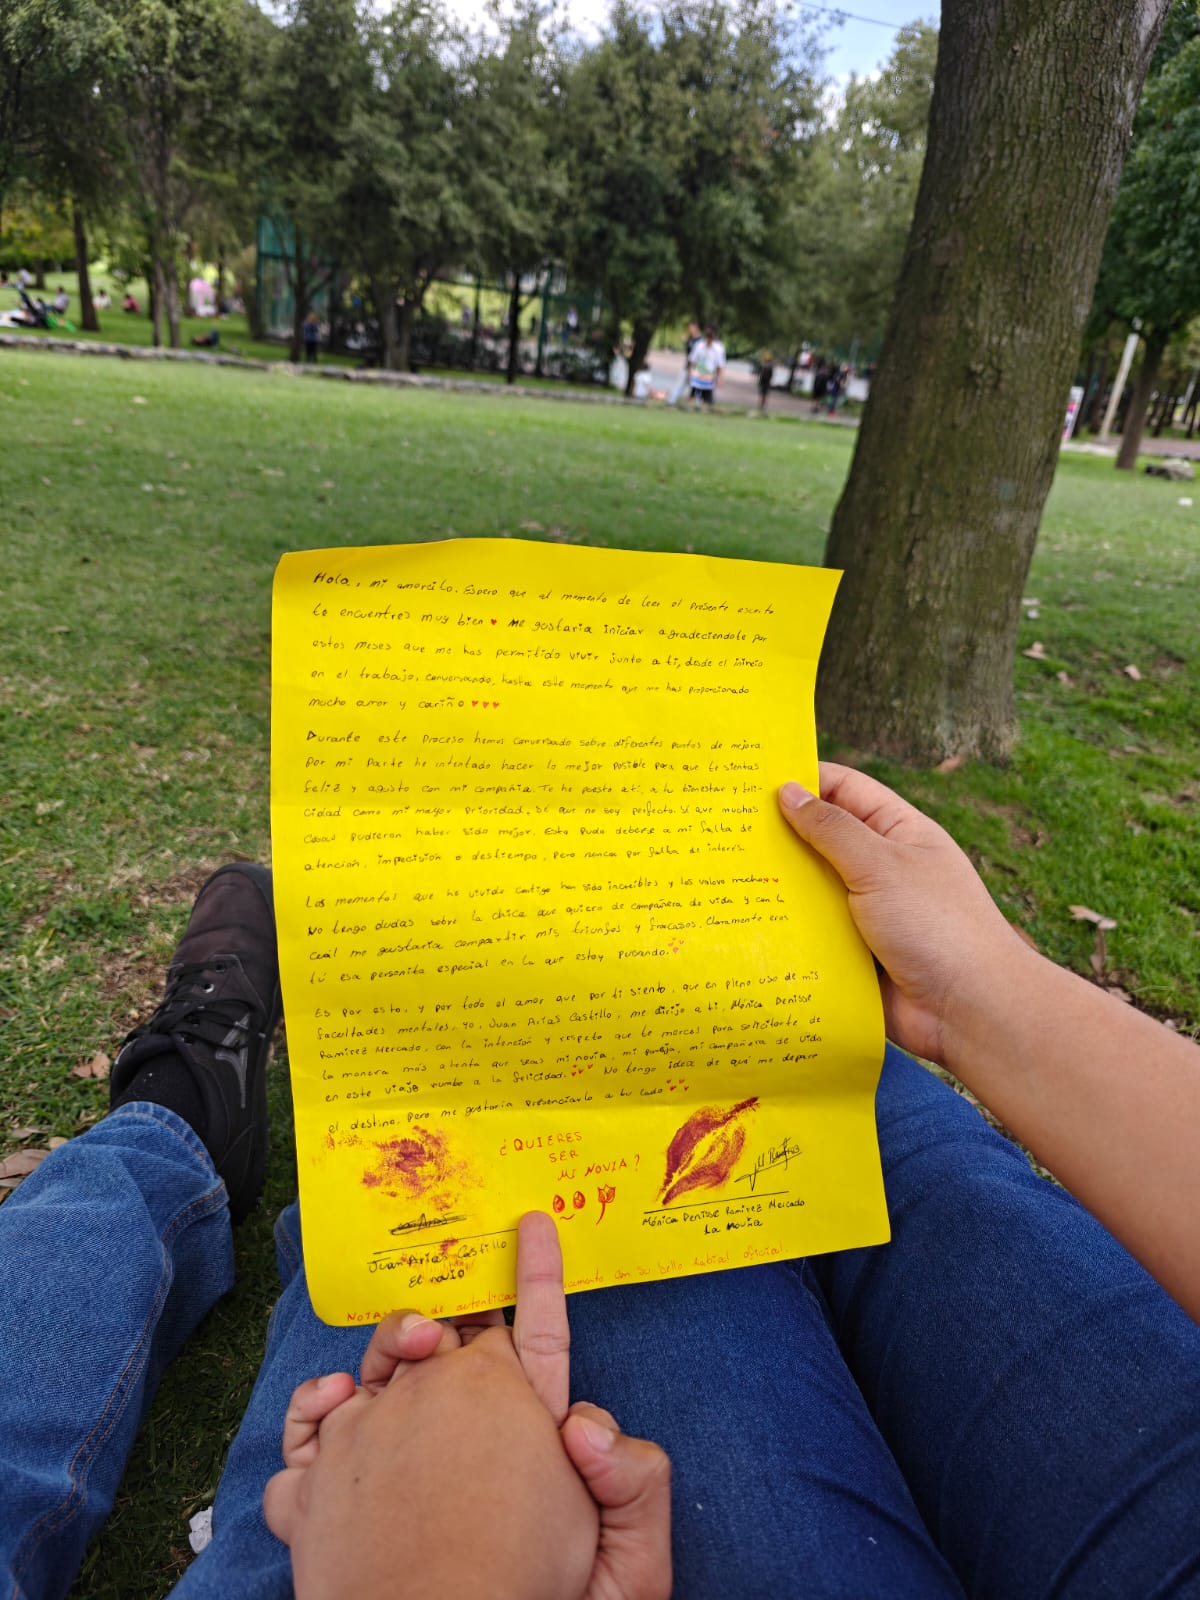 Hola, mi amorcito. Espero que al momento de leer el presente escrito
te encuentres muy bien ♥ Me gustaria iniciar agradeciendote por
estos meses que me has permitido vivir junto a ti, desde el inicio
en el trabajo, conversando, hasta este momento que me has proporcionado
mucho amor y cariño ♥♥♥
Durante este proceso hemos conversado sobre diferentes puntos de mejora.
Por mi parte he intentado hacer lo mejor posible para que te sientas
feliz y agusto con mi compañia. Te he puesto a ti, a tu bienestar y feli-
cidad como mi mayor prioridad. Sé que no soy perfecto. Sí que muchas
cosas pudieron haber sido mejor. Esto pudo deberse a mi falta de
atención, impecisión o destiempo, pero nunca por falta de interés.
Los momentos que he vivido contigo han sido increíbles y los valoro mucho♥♥
No tengo dudas sobre la chica que quiero de compañera de vida y con la
cuál me gustaria compartir mis triunfos y fracasos. Claramente eres
tú esa personita especial en la que estoy pensando.♥♥♥
Es por esto, y por todo el amor que por ti siento, que en pleno uso de mis
facultades mentales, yo, Juan Arias Castillo, me dirijo a ti, Mónica Denisse
Ramirez Mercado, con la intención y respeto que te mereces para solicitarte de
la manera más atenta que seas mi novia, mi pareja, mi compañera de vida
en este viaje rumbo a la felicidad.♥♥♥ No tengo idea de qué me depare
el destino, pero me gustaria presenciarlo a tu lado ♥♥♥
¿QUIERES
SER
MI NOVIA?
Juan Arias Castillo
El novio
Mónica Denisse Ramirez Mercado
La novia
de con su sello labial oficial.